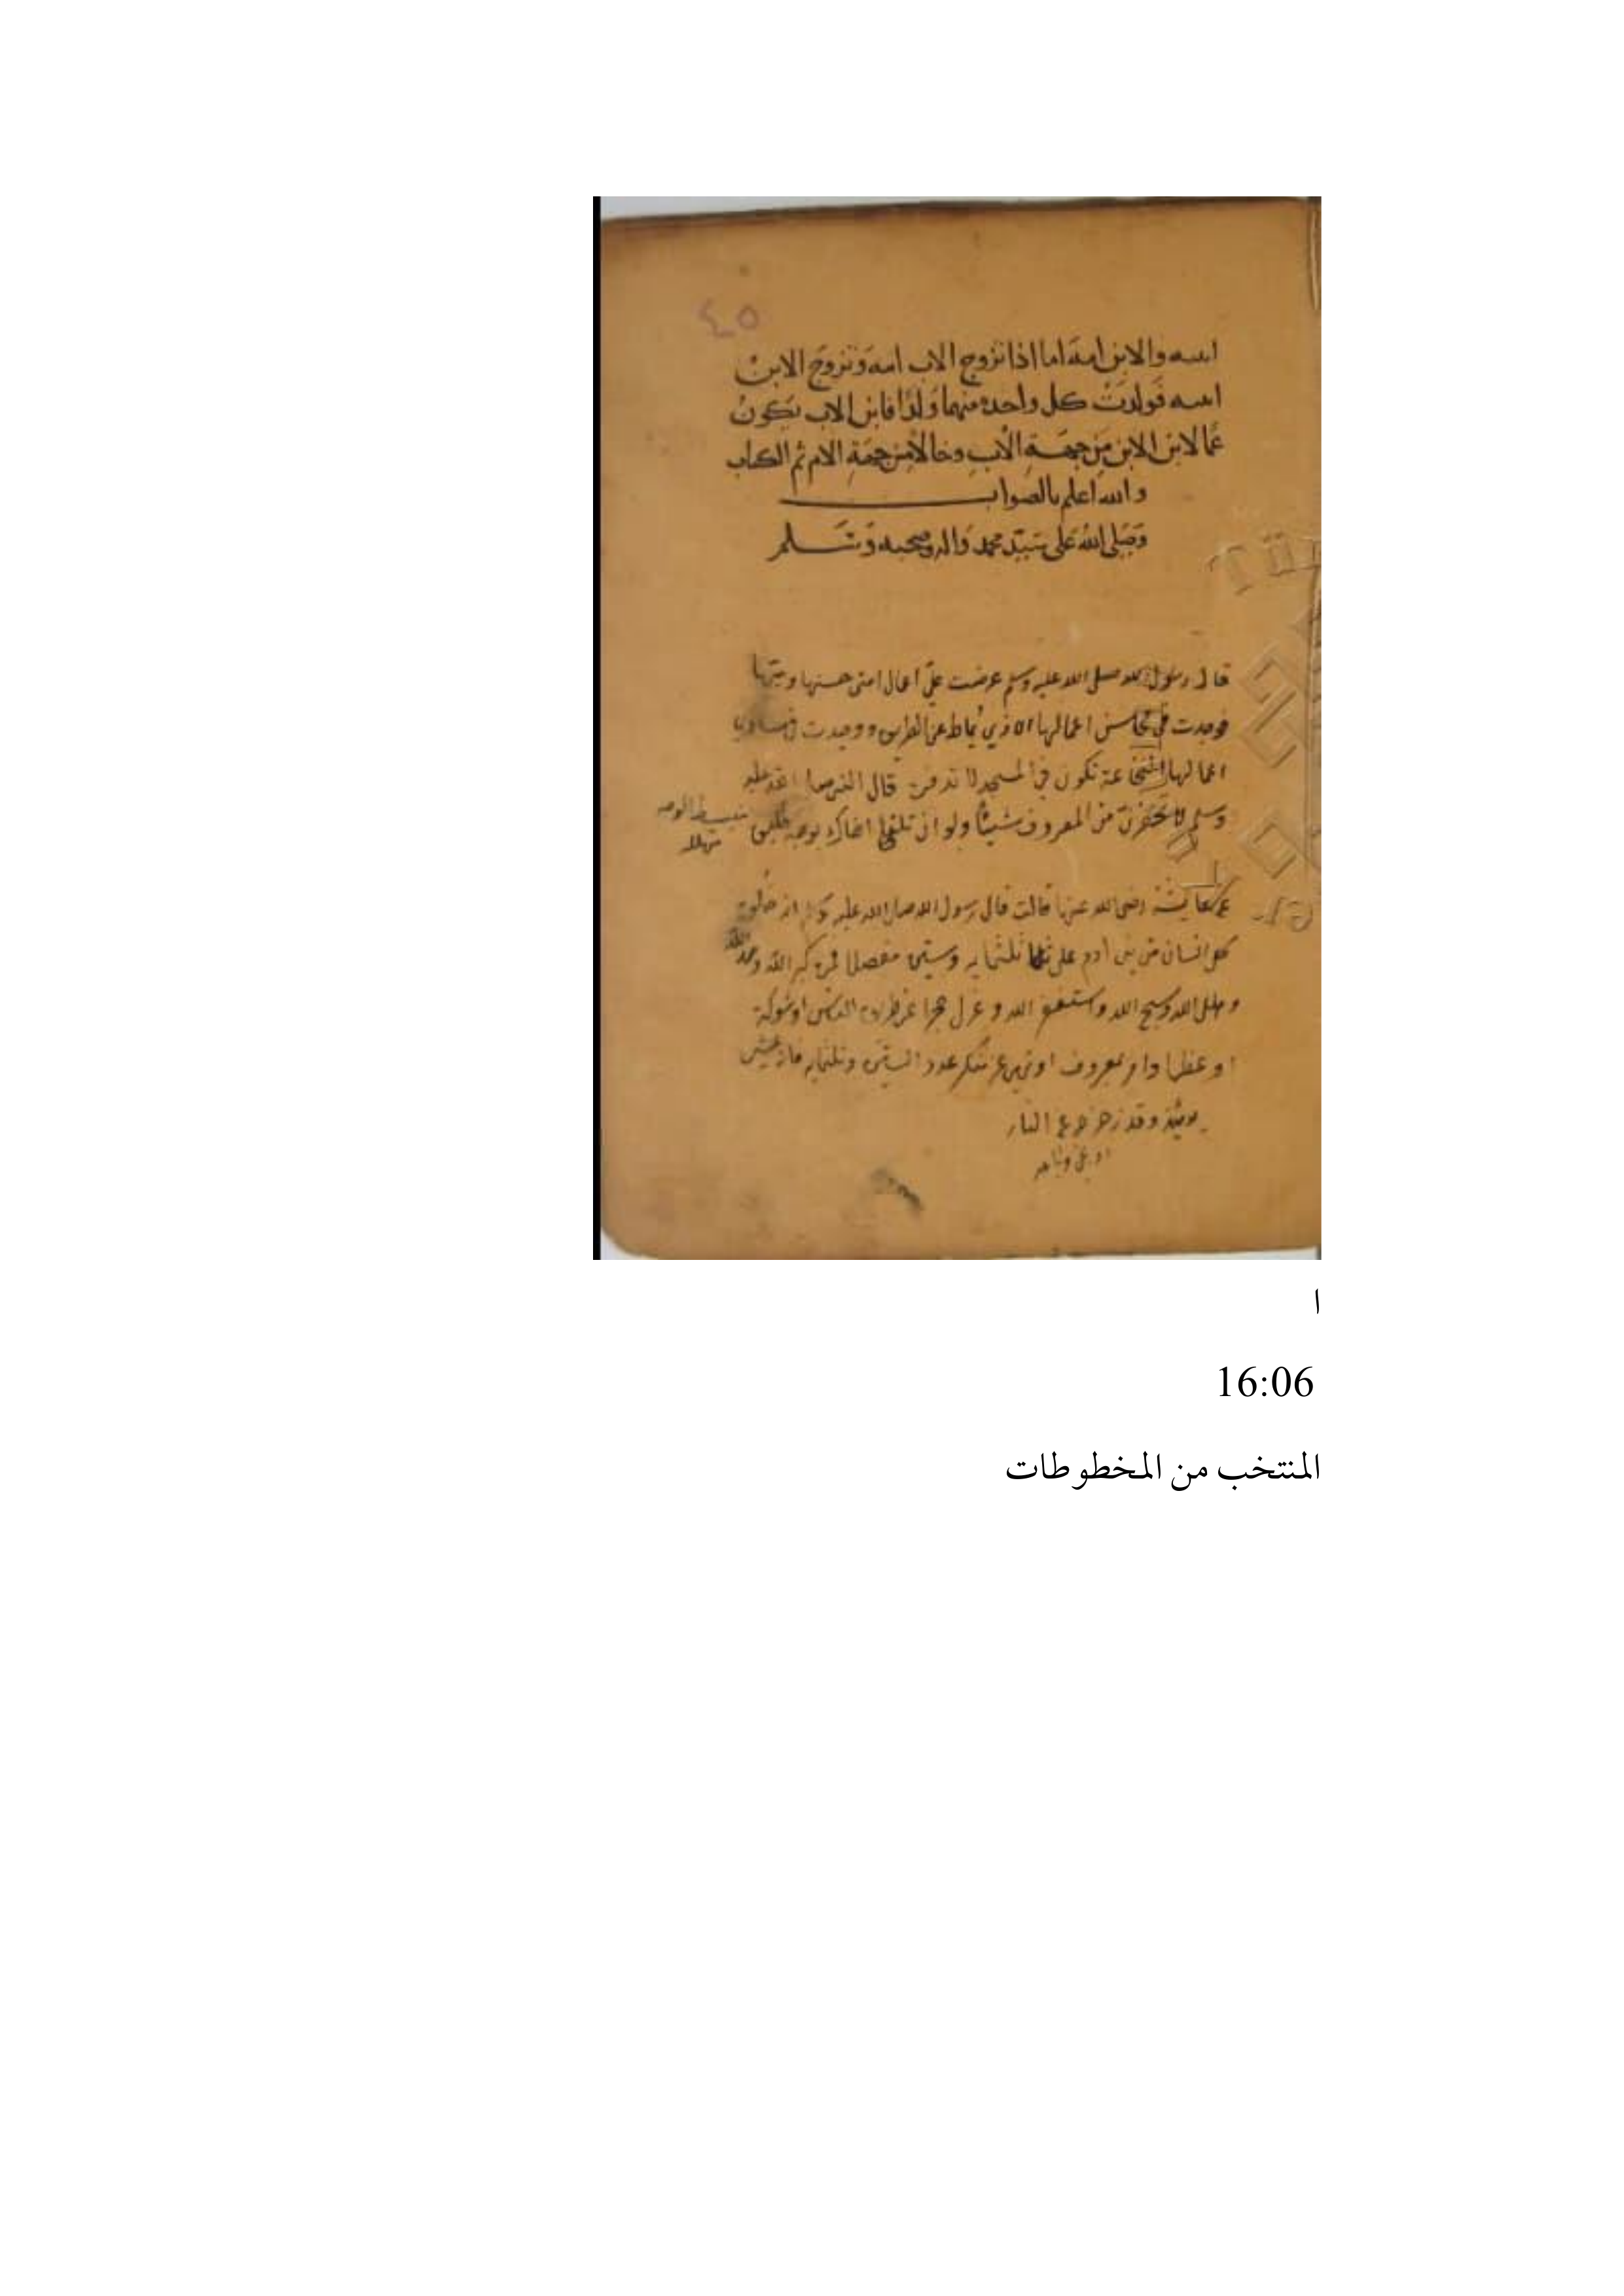 ٤٥
ابنته والابن امه اما اذا تزوج الاب امه وتزوج الابن
ابنته فولدت كل واحدة منهما ولدا فابن الاب يكون
عما لابن الابن من جهة الاب وخالا من جهة الام تم الكتاب
والله اعلم بالصواب
وصلى الله على سيد محمد واله وصحبه وسلم
قال رسول الله صلى الله عليه وسلم عرضت علي اعمال امتي حسنها وسيئها
فوجدت في محاسن اعمالها الاذي يماط عن الطريق ووجدت في مساويا
اعمالها النخاعة تكون في المسجد لا تدفن قال النبي صلى الله عليه
وسلم لا تحقرن من المعروف شيئا ولو ان تلقى اخاك بوجه طليق
منبسط الوجه
متهلل
عن عائشة رضي الله عنها قالت قال رسول الله صلى الله عليه وسلم انه خلق
كل انسان من بني ادم على ثلثمايه وستين مفصلا فمن كبر الله وحمد الله
وهلل الله وسبح الله واستغفر الله وعزل حجرا عن طريق الناس او شوكة
او عظما وامر بمعروف او نهي عن منكر عدد الستين وثلثمايه فانه يمشي
يومئذ وقد زحزح عن النار
ا
16:06
المنتخب من المخطوطات